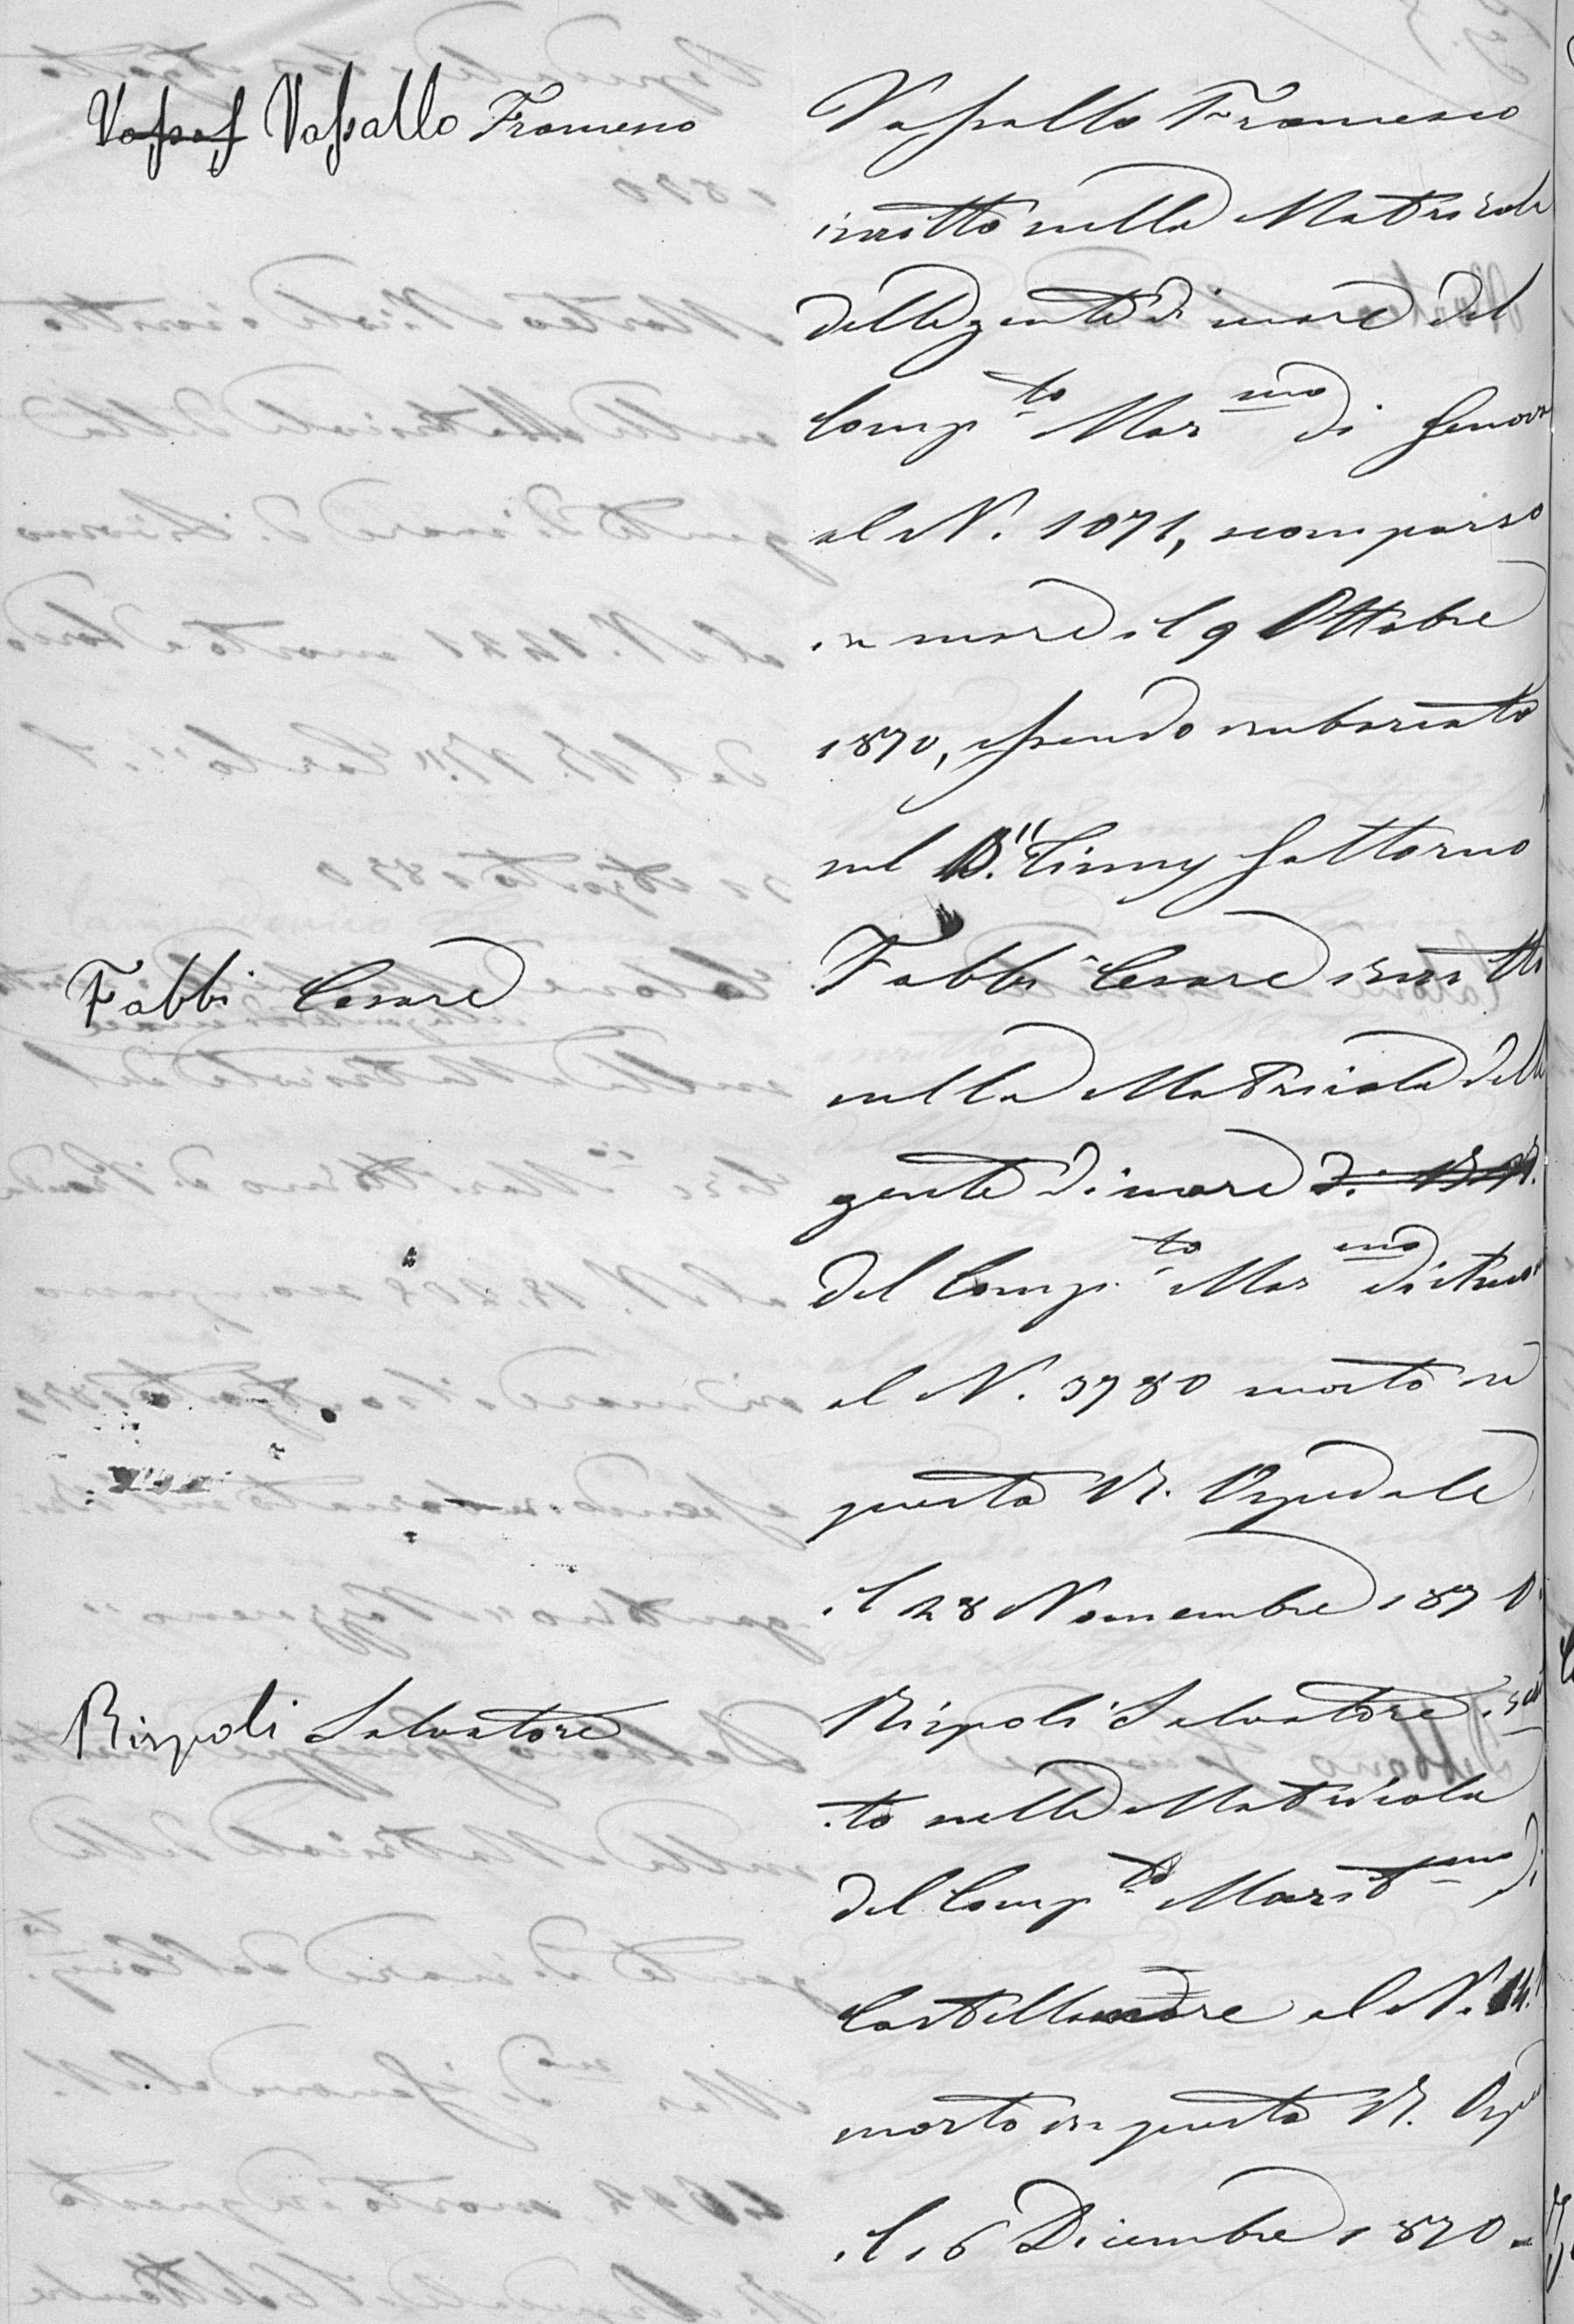 Vassas Vassallo Francesco
Vassallo Francesco
iscritto nella Matricola
della gente di mare del
Comp.to Mar.mo di Genova
al N. 1071, scomparso
in mare il 9 Ottobre
1870, essendo imbarcato
sul B. "Cinny Gattorno"
Fabbi Cesare
Fabbi Cesare iscritto
nella Matricola della
gente di mare di
del Comp.to Mar.mo di
al N. 3780 morto in
questo R. Ospedale
il 28 Novembre 1870.
Rispoli Salvatore
Rispoli Salvatore iscrit
to nella Matricola
del Comp.to Marit.mo di
Castellamare al N. 14
morto in questo R. Osped
il 16 Dicembre 1870 -